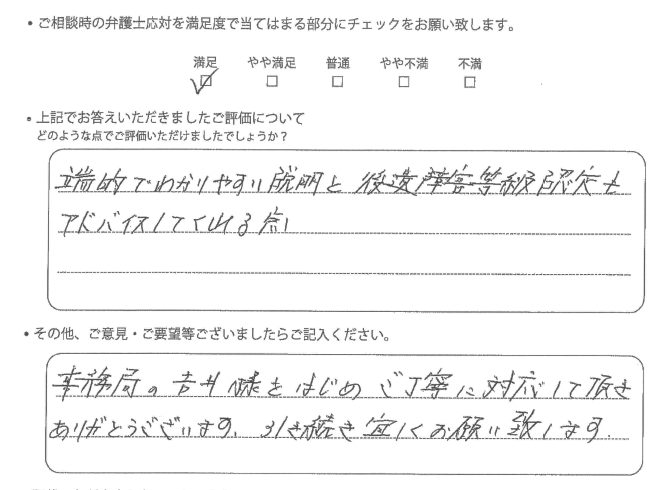 • ご相談時の弁護士応対を満足度で当てはまる部分にチェックをお願い致します。
満足 やや満足 普通 やや不満 不満
• 上記でお答えいただきましたご評価について
どのような点でご評価いただけましたでしょうか？
端的でわかりやすい説明と 後遺障害等級認定も
アドバイスしてくれる点
• その他、ご意見・ご要望等ございましたらご記入ください。
事務局の吉井様をはじめ ご丁寧に対応して頂き
ありがとうございます。引き続き宜しくお願い致します。